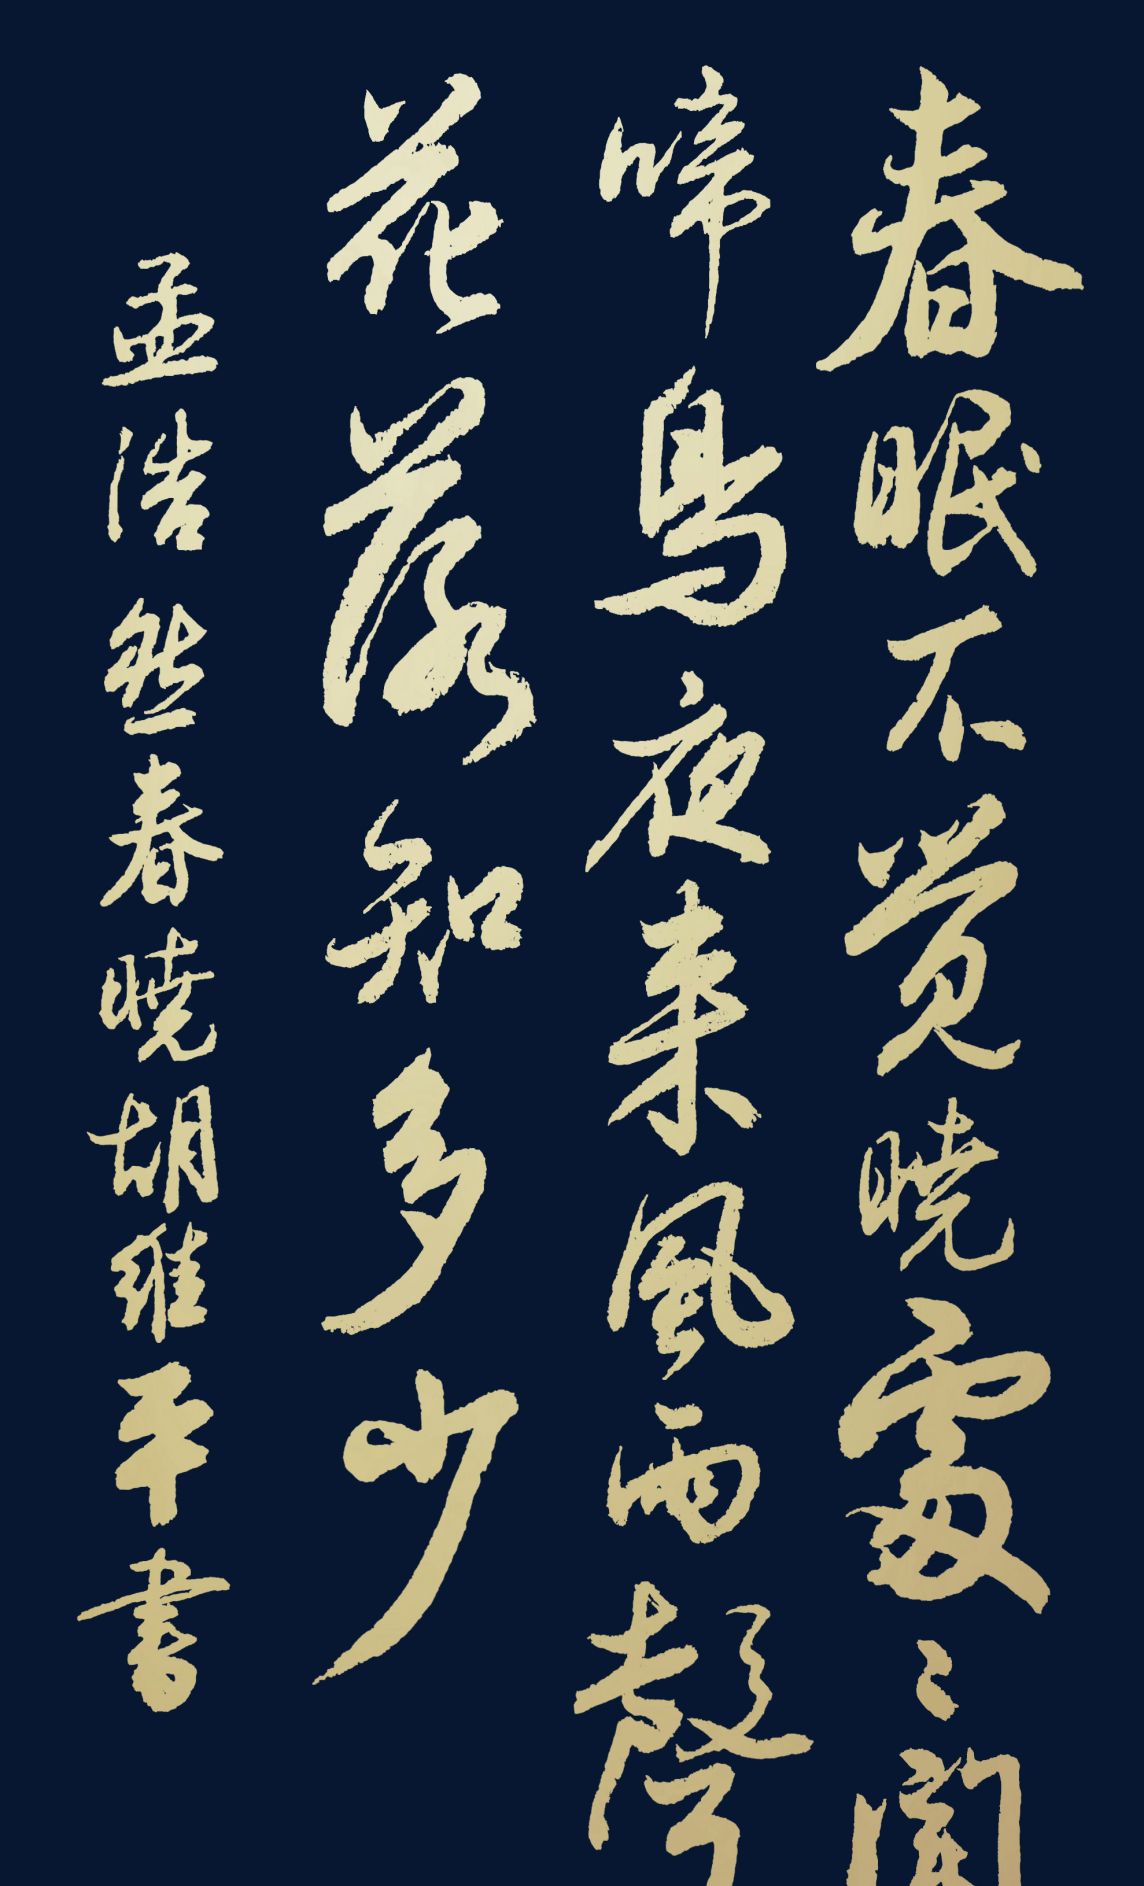 春眠不觉晓處〻闻
啼鳥夜来風雨聲
花落知多少
孟浩然春曉胡维平書